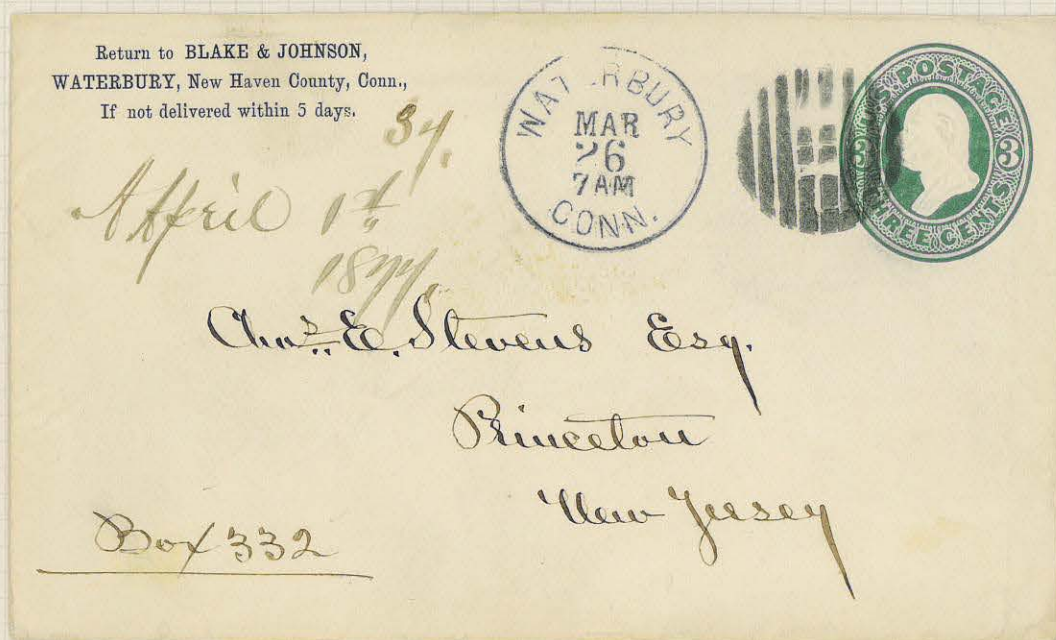 Return to BLAKE & JOHNSON,
WATERBURY, New Haven County, Conn.,
If not delivered within 5 days.
WATERBURY
MAR
26
7AM
CONN.
U.S. POSTAGE
3
THREE CENTS
April 1st
1877.
Chas. E. Stevens Esq.
Princeton
New Jersey
Box 332